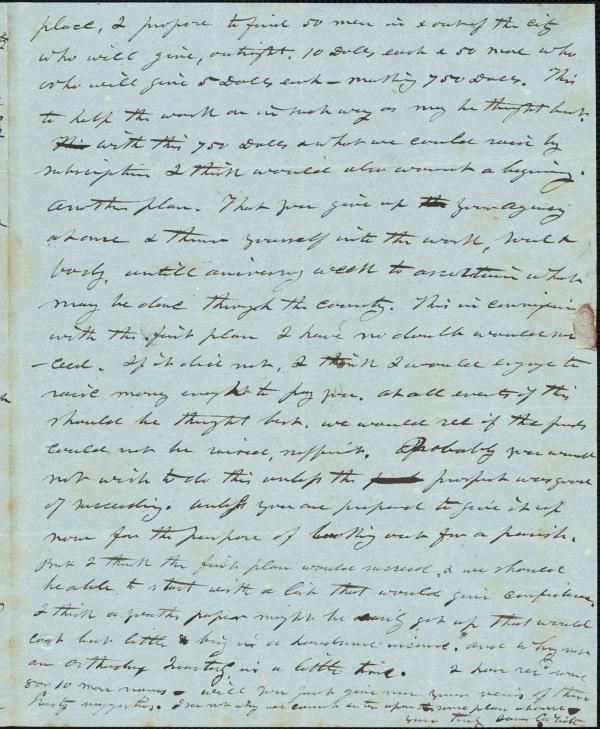 place, I propose to find 50 men in & out of the city
who will give, outright, 10 Dolls each & 50 more who
who will give 5 Dolls each – making 750 Dolls. This
to help the work on in such way as may be thought best.
with this 750 Dolls & what we could raise by
subscription I think would also warrant a begining.
Another plan. That you give up your Agency
at once & throw yourself into the work, soul &
body, untill aniversary week to ascertain what
may be done through the country. This in
with the first plan I have no doubt would suc
-ceed. If it did not, I think I would engage to
raise money enough to pay you. at all events if this
should be thought best, we would see if the funds
could not be raised, sufficient. Probably you would
not wish to do this unless the prospect was good
of succeeding. unless you are prepared to give it up
now for the purpose of looking out for a parish.
But I think the first plan would succeed, & we should
be able to start with a list that would give confidence.
I think a youths paper might be easily got up that would
cost but little & bring in a handsome income. and why not
an Orthodox Quarterly in a little time. I have rec'd some
8 or 10 more names – will you just give me your views of these
hasty suggestions. I see not why we cannot enter upon some plan at once.
Yours truly